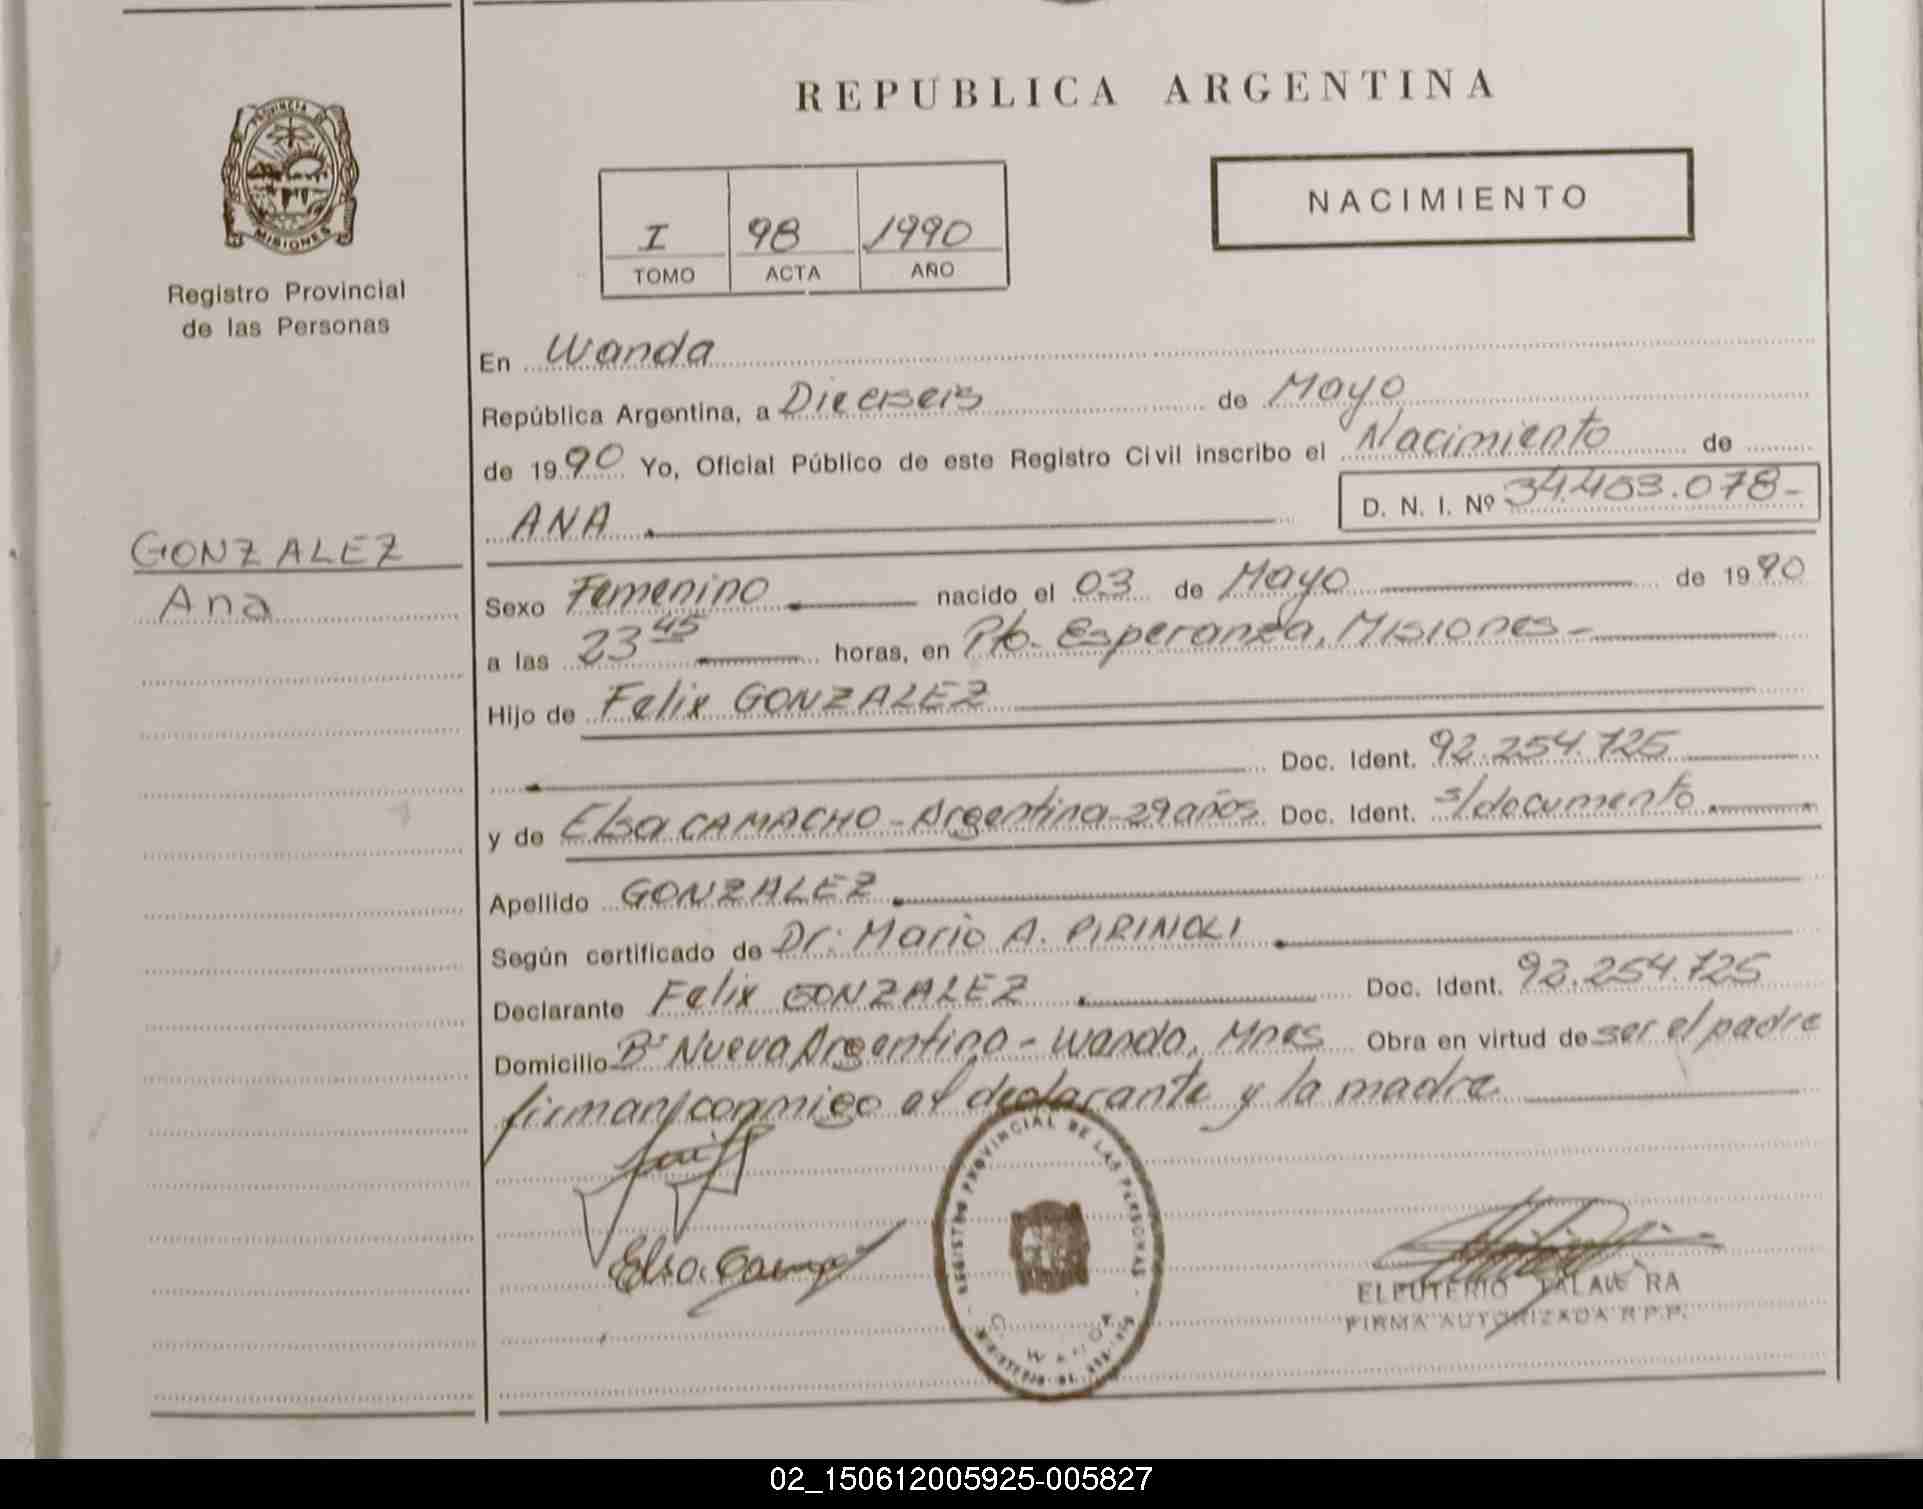 REPUBLICA ARGENTINA
PROVINCIA DE
MISIONES
Registro Provincial
de las Personas
NACIMIENTO
I 98 1990
TOMO ACTA AÑO
En Wanda
República Argentina, a Dieciseis de Mayo
de 1990 Yo, Oficial Público de este Registro Civil inscribo el Nacimiento de
ANA D. N. I. Nº 34.403.078-
GONZALEZ
Ana
Sexo Femenino nacido el 03 de Mayo de 1990
a las 23 45 horas, en Pto. Esperanza, Misiones-
Hijo de Felix GONZALEZ
Doc. Ident. 92.254.725
y de Elsa CAMACHO - Argentina - 29 años Doc. Ident. s/documento
Apellido GONZALEZ
Según certificado de Dr. Mario A. PIRINOLI
Declarante Felix GONZALEZ Doc. Ident. 92.254.725
Domicilio Bº Nueva Argentina - Wanda, Mnes Obra en virtud de ser el padre
firman conmigo el declarante y la madre
REGISTRO PROVINCIAL DE LAS PERSONAS
WANDA
Elsa
ELEUTERIO TALAVERA
FIRMA AUTORIZADA R.P.P.
02_150612005925-005827